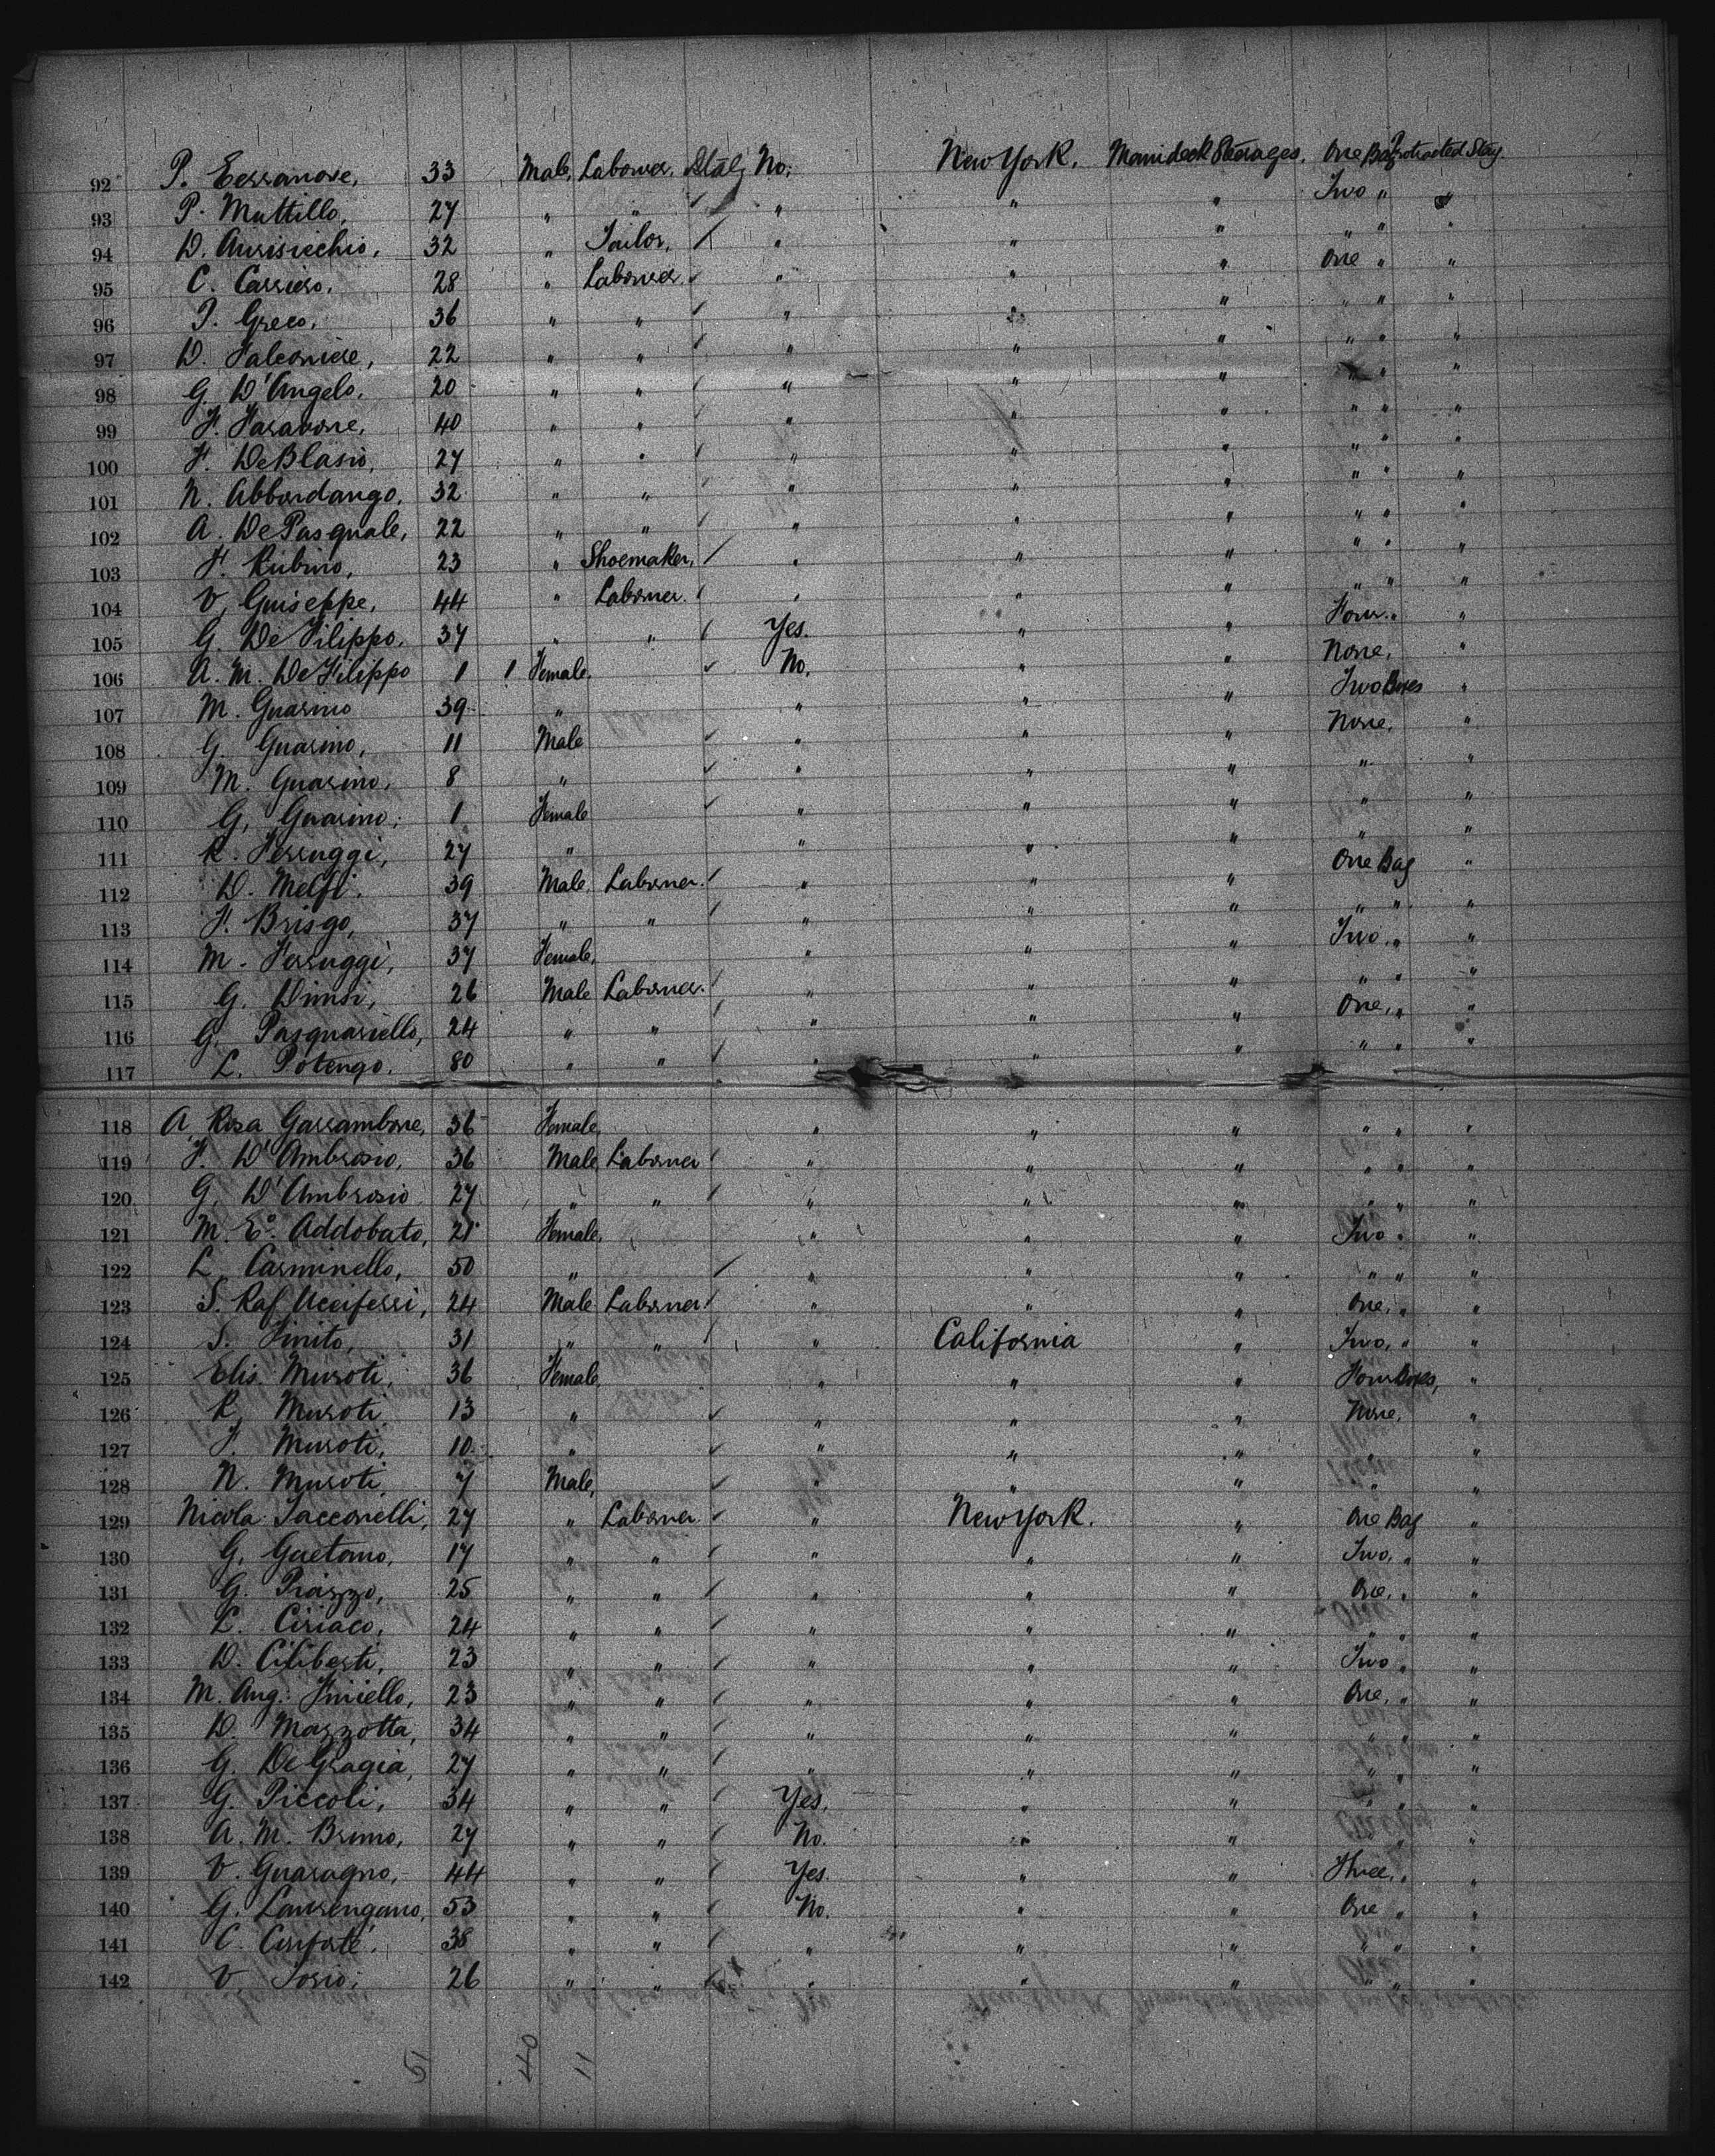 92 P. Terranove, 33 Male, Laborer, Italy No. New York. Maindeck Steerages. One Bag Protracted Stay.
93 P. Muttillo, 27 " " " " " Two " "
94 D. Aurisicchio, 32 " Tailor, " " " " " "
95 C. Carriero, 28 " Laborer " " " One " "
96 P. Greco, 36 " " " " " " " "
97 D. Falconiere, 22 " " " " " " " "
98 G. D'Angelo, 20 " " " " " " " "
99 F. Faravone, 40 " " " " " " " "
100 F. DeBlasio, 27 " " " " " " " "
101 N. Abbondango, 32 " " " " " " " "
102 A. DePasquale, 22 " " " " " " " "
103 F. Rubino, 23 " Shoemaker, " " " " " "
104 V. Guiseppe, 44 " Laborer. " " " " " "
105 G. De Filippo, 37 " " Yes. " " Four " "
106 A. M. DeFilippo 1 1 Female. No. " " None, "
107 M. Guarino 39 " " " " Two Boxes "
108 G. Guarino, 11 Male " " " None, "
109 M. Guarino, 8 " " " " " "
110 G. Guarino, 1 Female " " " " "
111 R. Ferruggi, 27 " " " " " "
112 D. Melfi. 39 Male. Laborer. " " " One Bag "
113 F. Brisgo, 37 " " " " " " " "
114 M. Ferruggi, 37 Female, " " " Two " "
115 G. Dimsi, 26 Male Laborer. " " " " " "
116 G. Pasquariello, 24 " " " " " One, " "
117 L. Potengo. 80 " " " " " " " "
118 A Rosa Garrambone, 36 Female, " " " " " "
119 F. D'Ambrosio, 36 Male, Laborer " " " " " "
120 G. D'Ambrosio 27 " " " " " " " "
121 M. Eo. Addobato, 21 Female, " " " Two " "
122 L. Carminello, 50 " " " " " " "
123 S. Raf Ucciferri, 24 Male Laborer " " " One, " "
124 S. Finito, 31 " " " California " Two, " "
125 Elis. Muroti, 36 Female, " " " Four Boxes, "
126 R. Muroti, 13 " " " " None, "
127 F. Muroti, 10 " " " " " "
128 N. Muroti, 7 Male, " " " " "
129 Nicola Iacconelli, 27 " Laborer " New York. " One Bag "
130 G. Gaetano, 17 " " " " " Two, " "
131 G. Piazzo, 25 " " " " " One, " "
132 L. Ciriaco, 24 " " " " " " " "
133 D. Ciliberti, 23 " " " " " Two " "
134 M. Ang. Finiello, 23 " " " " " One, " "
135 D. Mazzotta, 34 " " " " " " " "
136 G. De Gragia, 27 " " " " " " " "
137 G. Piccoli, 34 " " Yes, " " " " "
138 A. M. Bruno, 27 " " No. " " " "
139 V. Guaragno, 44 " " Yes. " " Three, " "
140 G. Laurengano, 53 " " No. " " One " "
141 C. Conforte. 38 " " " " " " " "
142 V. Iorio; 26 " " " " " " " "
51 40 11